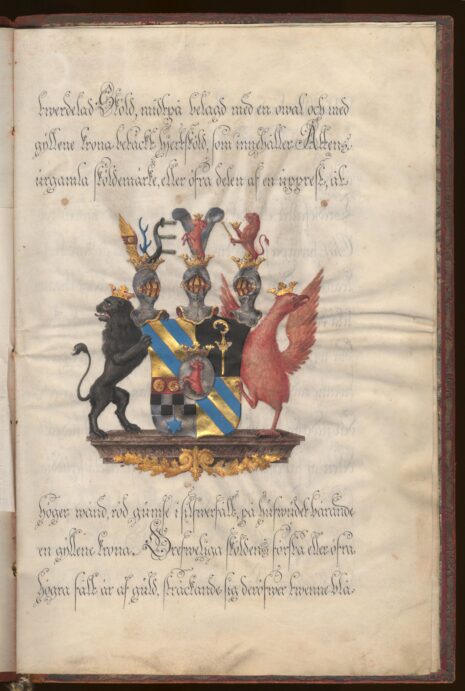 twerdelad Sköld, midtpå belagd med en owal och med
gyllene krona betäckt hjertsköld, som innehåller Ättens
urgamla sköldemärke, eller öfra delen af en upprest, åt
höger wänd, röd gumse i silfwerfält, på hufwudet bärande
en gyllene krona. Grefweliga sköldens första eller öfra
högra fält är af guld, sträckande sig deröfwer twenne blå-